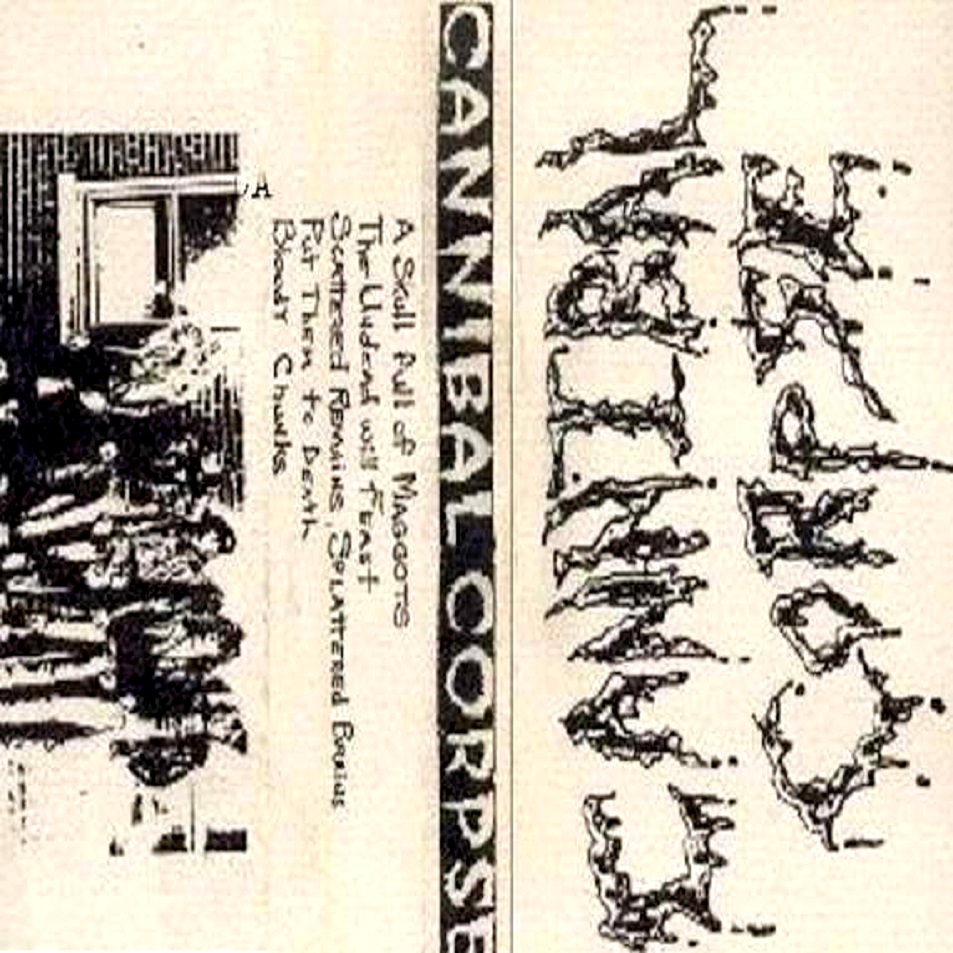 A Skull Full of MAGGOTS
The Undead will Feast
Scattered Remains, Splattered Brains
Put Them to Death
Bloody Chunks
CANNIBAL CORPSE
CANNIBAL
CORPSE